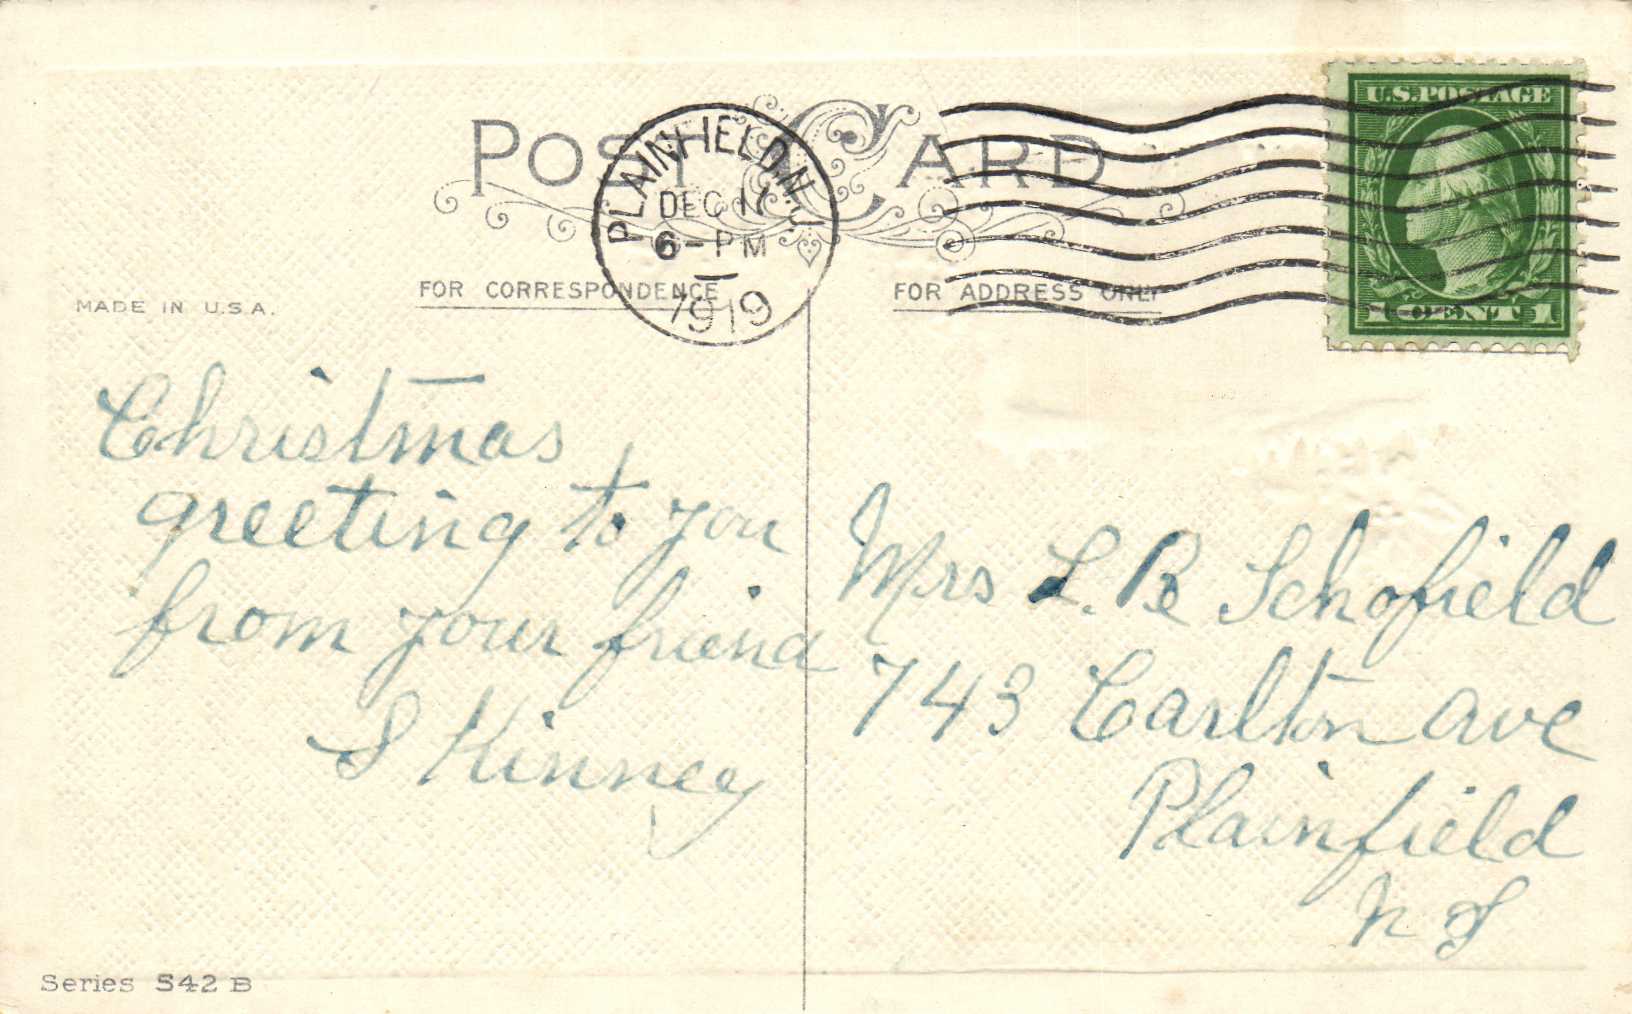 POST CARD
PLAINFIELD, N.J.
DEC 17
6 - PM
1919
U.S. POSTAGE
1 CENT 1
MADE IN U.S.A.
FOR CORRESPONDENCE
FOR ADDRESS ONLY
Christmas
greeting to you
from your friend
S Kinney
Mrs L. B Schofield
743 Carlton ave
Plainfield
N J
Series 542 B